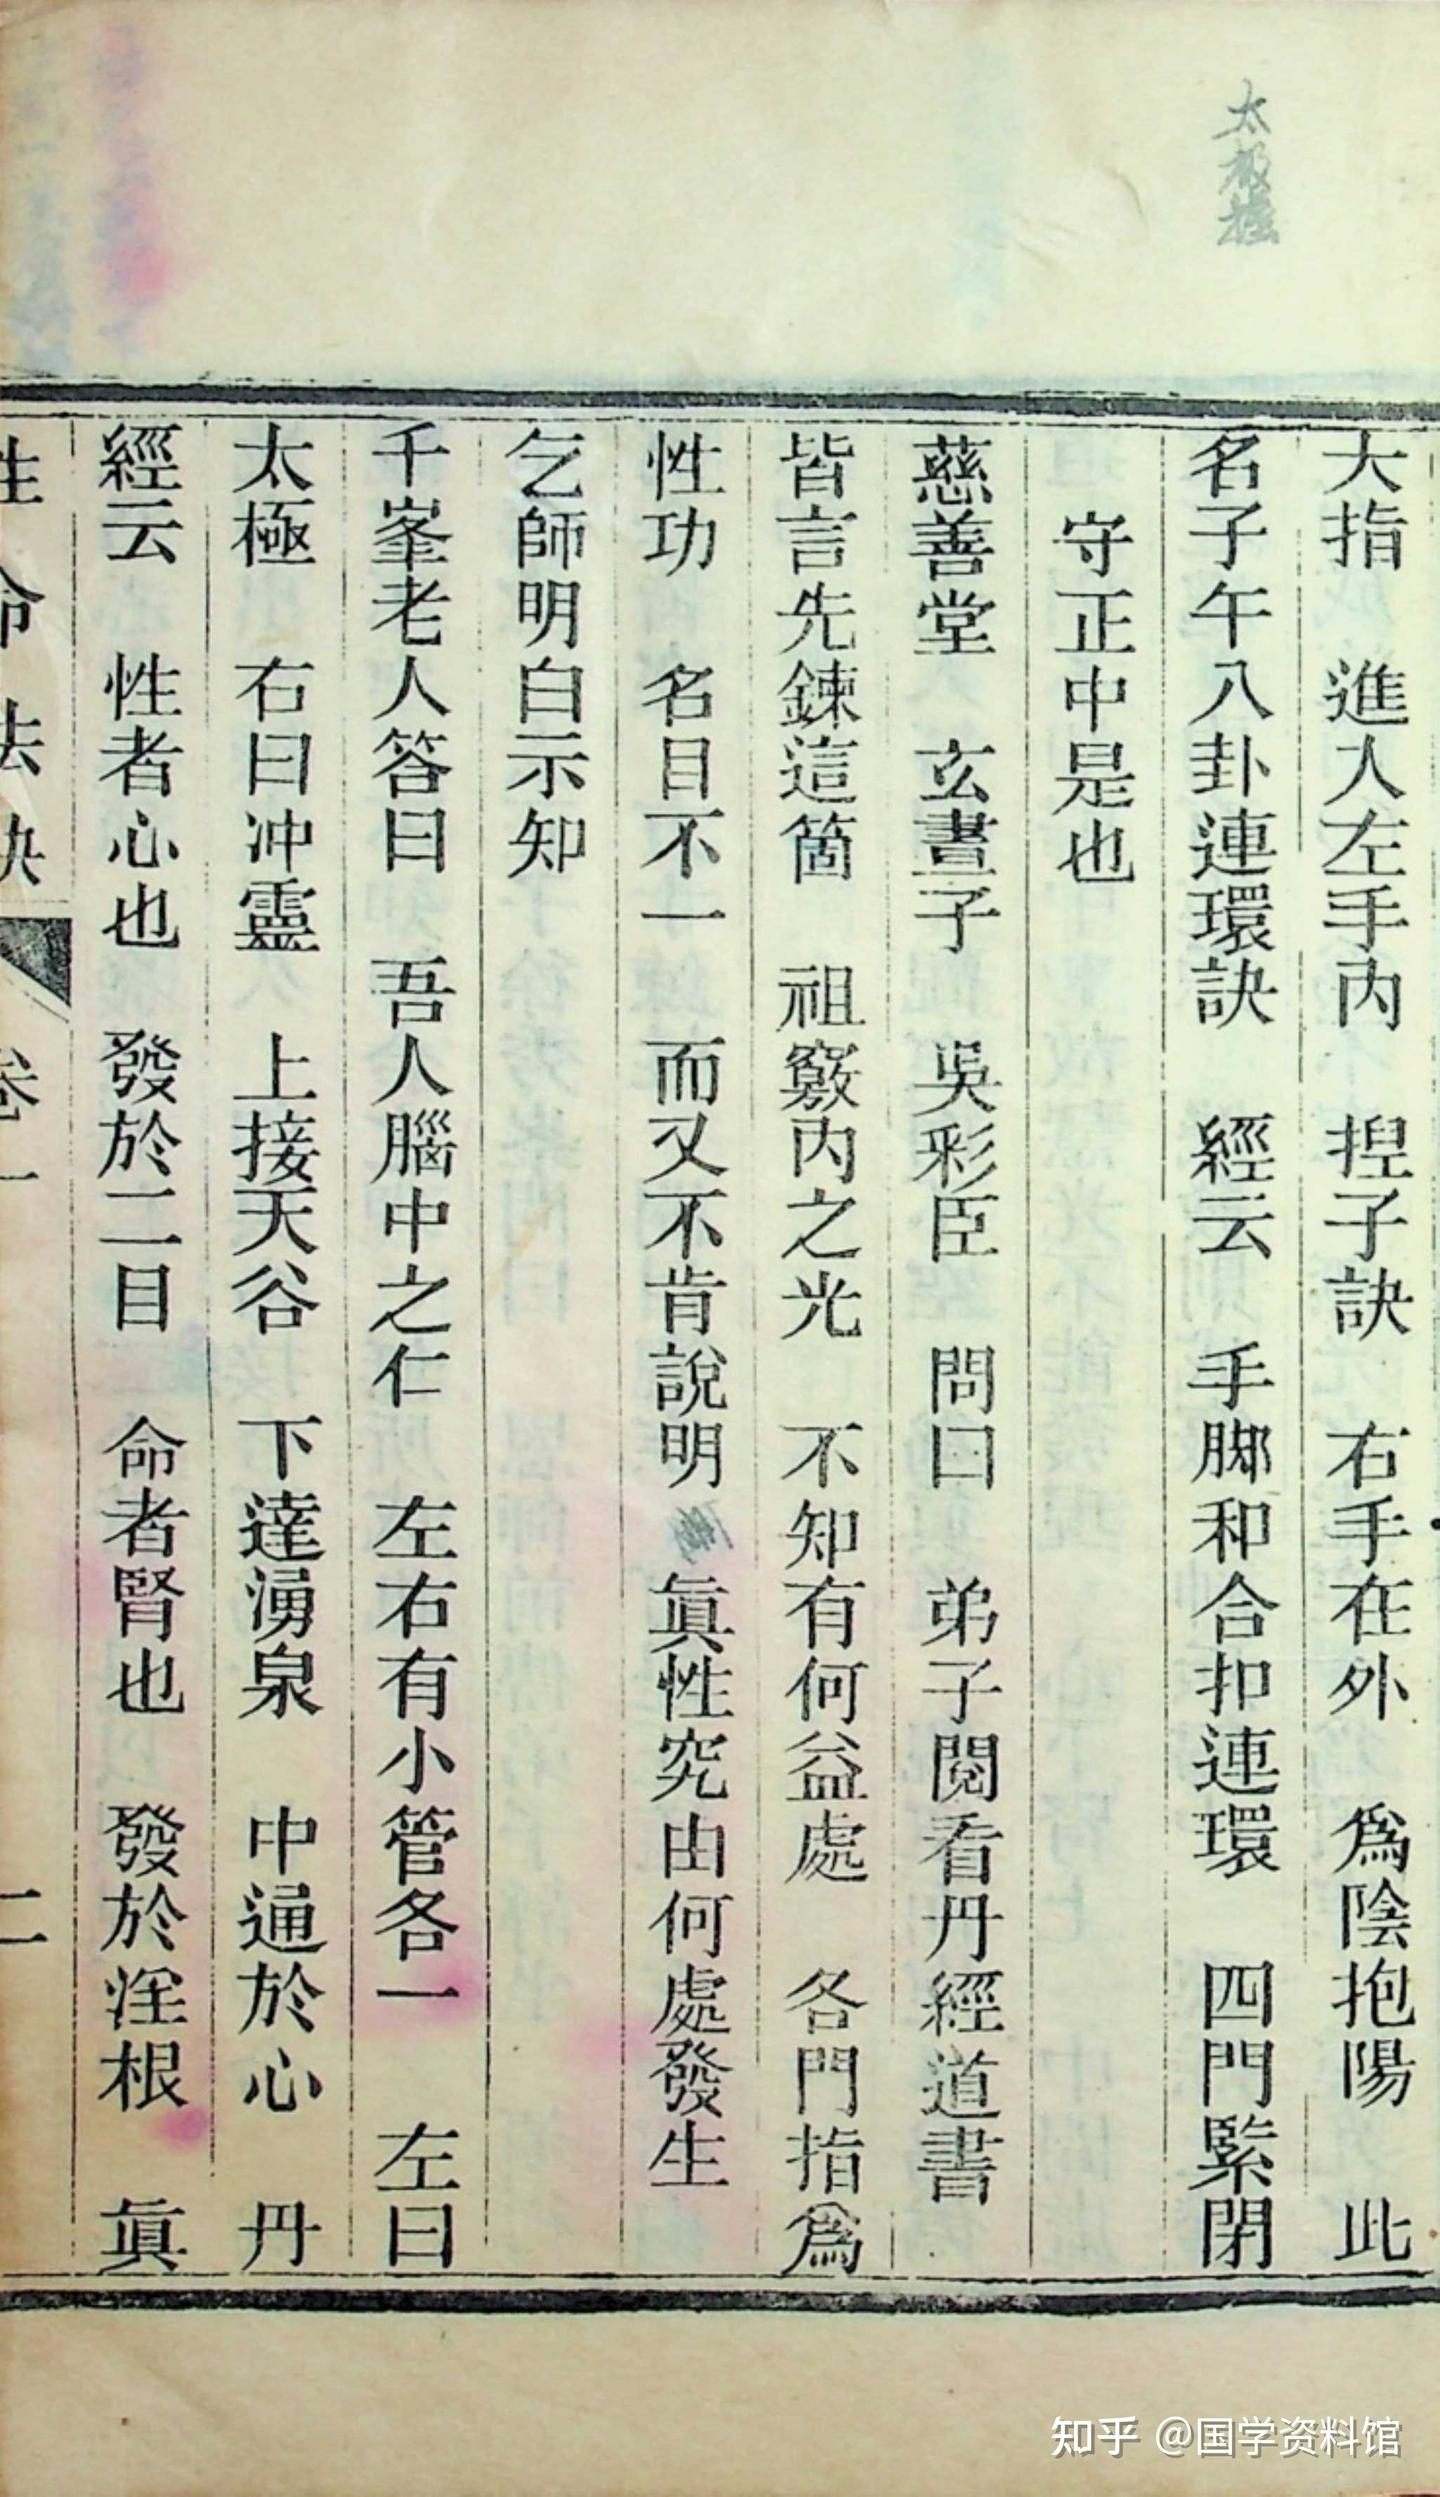 太極
大指　進人左手內　揑子訣　右手在外　爲陰抱陽　此
名子午八卦連環訣　經云　手脚和合扣連環　四門緊閉
守正中是也
慈善堂　玄晝子　吳彩臣　問曰　弟子閱看丹經道書
皆言先鍊這箇　祖竅內之光　不知有何益處　各門指爲
性功　名目不一　而又不肯說明　眞性究由何處發生
乞師明白示知
千峯老人答曰　吾人腦中之仁　左右有小管各一　左曰
太極　右曰冲靈　上接天谷　下達湧泉　中通於心　丹
經云　性者心也　發於二目　命者腎也　發於淫根　眞
性命法訣　卷一　二
知乎 @国学资料馆